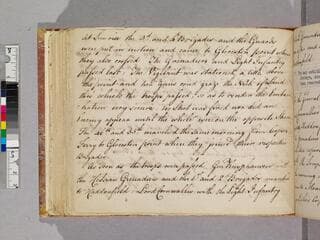 at Sunrise the 3d. and 4 Brigades and the Guards
were put in motion and came to Gloucster point where
they also crossed. The Grenadiers and Light Infantry
passed last. The Vigilant was stationed a little above
the point and her guns could graze the Neck of Land
this whole the troops passed, so as to render the embar-
kation very secure. no Shot was fired nor did an
enemy appear until the whole were on the opposite Shore
The and marched the same morning from Coopers
Ferry to Gloucster point where they joined their respective
Brigades
As soon as the troops were passed, Gen Knyphausen
the Hessian Grenadiers and the 1st and 2d Brigades marched
to Haddonfield Lord Cornwallis with the Light Infantry